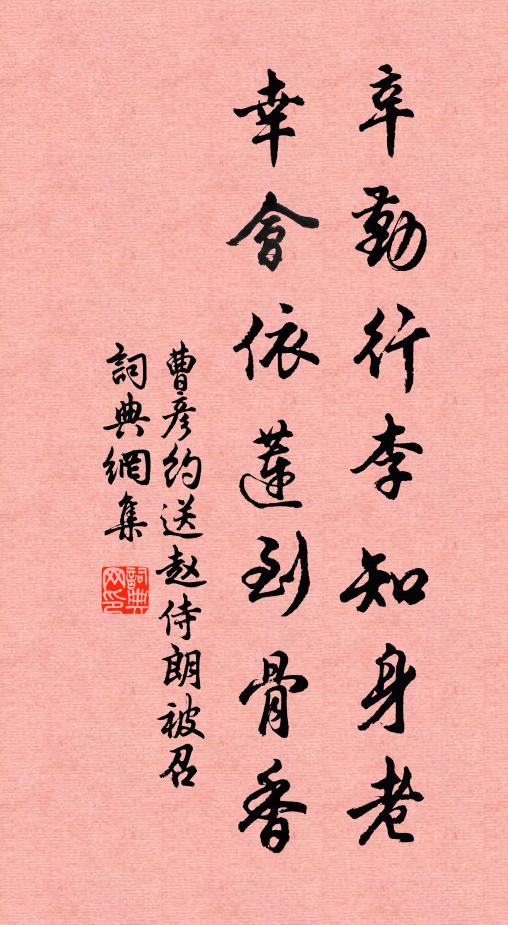 辛勤行李知身老
幸會依蓮到骨香
曹彥約送赵侍朗被召
詞典網集
詞典网印